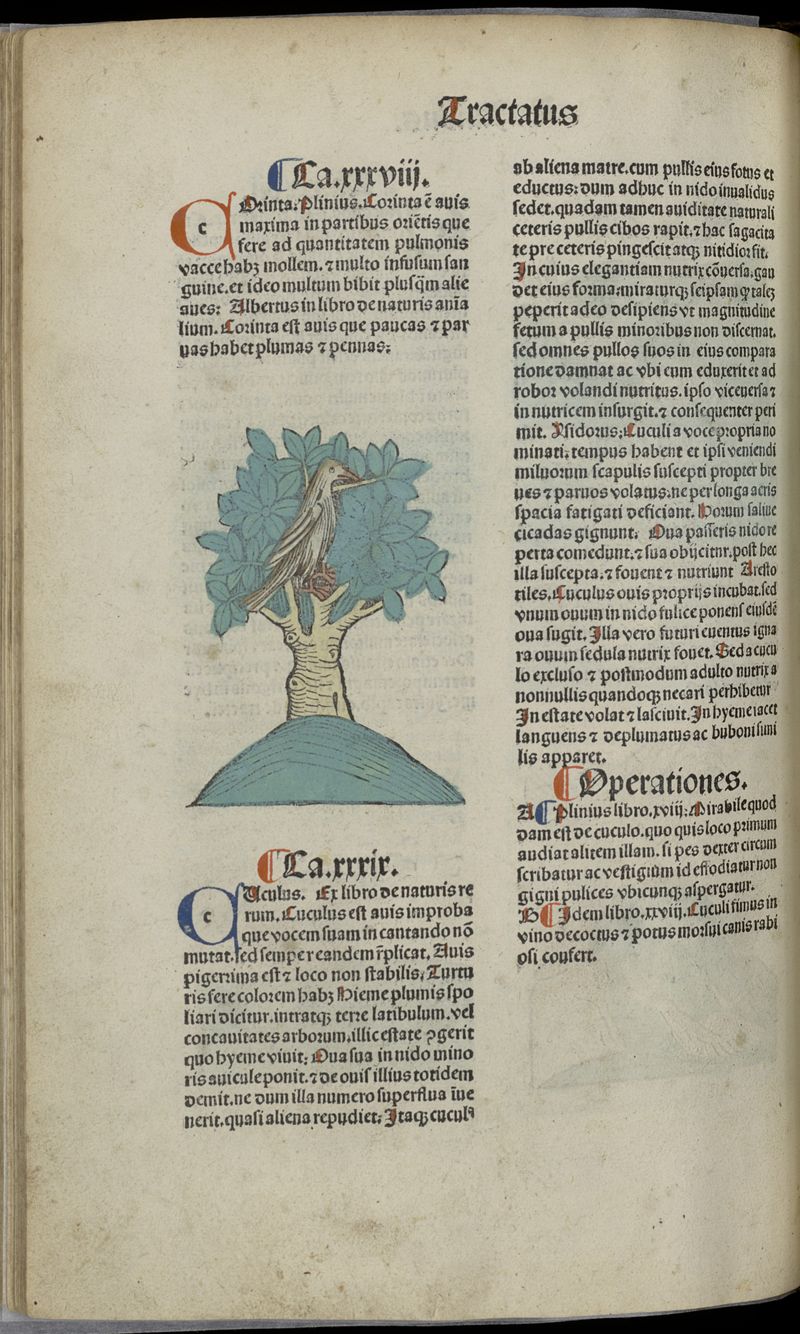 Tractatus
Ca.xxxviij.
COrinta. Plinius. Corinta ē auis
maxima in partibus oriētis que
fere ad quantitatem pulmonis
vacce habꝫ mollem. ⁊ multo infusum san
guine. et ideo multum bibit plusq̄m alie
aues: Albertus in libro de naturis aīa
lium. Corinta est auis que paucas ⁊ par
uas habet plumas ⁊ pennas:
Ca.xxxix.
CUculus. Ex libro de naturis re
rum. Cuculus est auis improba
que vocem suam in cantando nō
mutat. sed semper eandem r̄plicat. Auis
pigerrima est ⁊ loco non stabilis. Turtu
ris fere colorem habꝫ Hieme plumis spo
liari dicitur. intratqꝫ terre latibulum. vel
concauitates arborum. illic estate ꝯgerit
quo hyeme viuit: Oua sua in nido mino
ris auicule ponit. ⁊ de ouis illius totidem
demit. ne dum illa numero superflua īue
nerit. quasi aliena repudiet: Itaqꝫ cuculꝰ
ab aliena matre. cum pullis eius fotus et
eductus: dum adhuc in nido inualidus
sedet. quadam tamen auiditate naturali
ceteris pullis cibos rapit. ⁊ hac sagacita
te pre ceteris pingescit atqꝫ nitidior fit.
In cuius elegantiam nutrix cōuersa. gau
det eius forma: miraturqꝫ seipsam ꝙ talēꝫ
peperit adeo desipiens vt magnitudine
fetum a pullis minoribus non discernat.
sed omnes pullos suos in eius compara
tione damnat ac vbi eum eduxerit et ad
robor volandi nutritus. ipso viceuersa ⁊
in nutricem insurgit. ⁊ consequenter peri
mit. Ysidorus: Cuculi a voce propria no
minati: tempus habent et ipsi veniendi
miluorum scapulis suscepti propter bre
ues ⁊ paruos volatus: ne per longa aeris
spacia fatigati deficiant. Horum saliue
cicadas gignunt. Oua passeris nido re
perta comedunt. ⁊ sua obijciunt. post hec
illa suscepta. ⁊ fouent ⁊ nutriunt Aresto
tiles. Cuculus ouis proprijs incubat. sed
vnum ouum in nido fulice ponens eiusdē
oua sugit. Illa vero futuri euentus igna
ra ouum sedula nutrix fouet. Sed a cucu
lo excluso ⁊ postmodum adulto nutrix a
nonnullis quandoqꝫ necari perhibetur
In estate volat ⁊ lasciuit. In hyeme iacet
languens ⁊ deplumatus ac buboni simi
lis apparet.
Operationes.
A Plinius libro. xviij: Mirabile quod
dam est de cuculo. quo quis loco primum
audiat alitem illam. si pes dexter circum
scribatur ac vestigium id effodiatur non
gigni pulices vbicunqꝫ aspergatur.
B Idem libro. xxviij. Cuculi fimus in
vino decoctus ⁊ potus morsui canis rabi
osi confert.